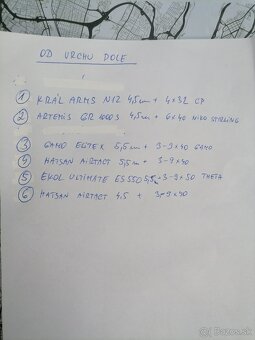 OD VRCHU DOLE
① KRÁL ARMS N12 4,5mm + 4×32 CP
② ARTEMIS GR 1000S 4,5mm + 6×40 NIKO STIRLING
③ GAMO ELITEX 5,5mm + 3-9×40 GAMO
④ HATSAN AIRTACT 5,5mm + 3-9×40
⑤ EKOL ULTIMATE ES550 5,5mm + 3-9×50 THETA
⑥ HATSAN AIRTACT 4,5 + 3-9×40
Bazos.sk